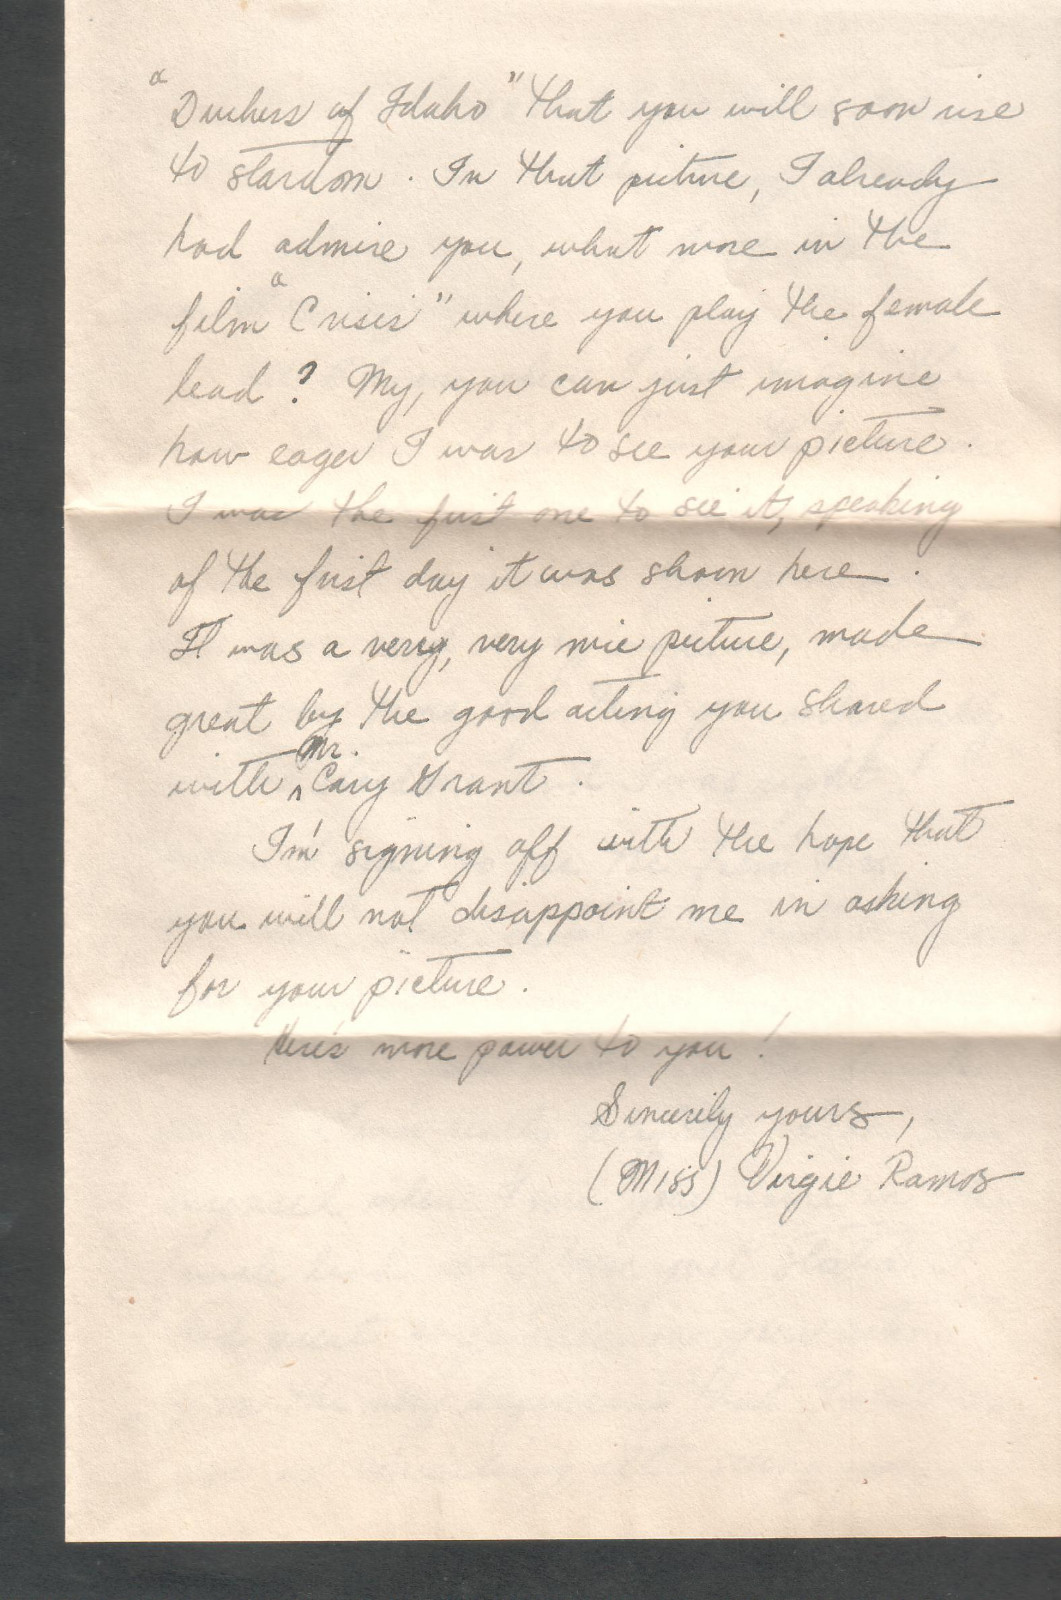 "Duchess of Idaho" that you will soon rise
to stardom. In that picture, I already
had admire you, what more in the
film "Crisis" where you play the female
lead? My, you can just imagine
how eager I was to see your picture.
I was the first one to see it, speaking
of the first day it was shown here.
It was a very, very nice picture, made
great by the good acting you shared
with Mr. Cary Grant.
I'm signing off with the hope that
you will not disappoint me in asking
for your picture.
Here's more power to you!
Sincerely yours,
(Miss) Virgie Ramos